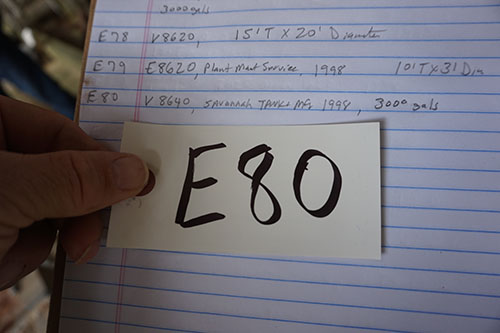 3000 gals
E78 V8620, 15'T X 20' Diameter
E79 E8620, Plant Maint Service, 1998 10'T X 3' Dia
E80 V8640, Savannah Tank & Mfg 1998, 3000 gals
E80